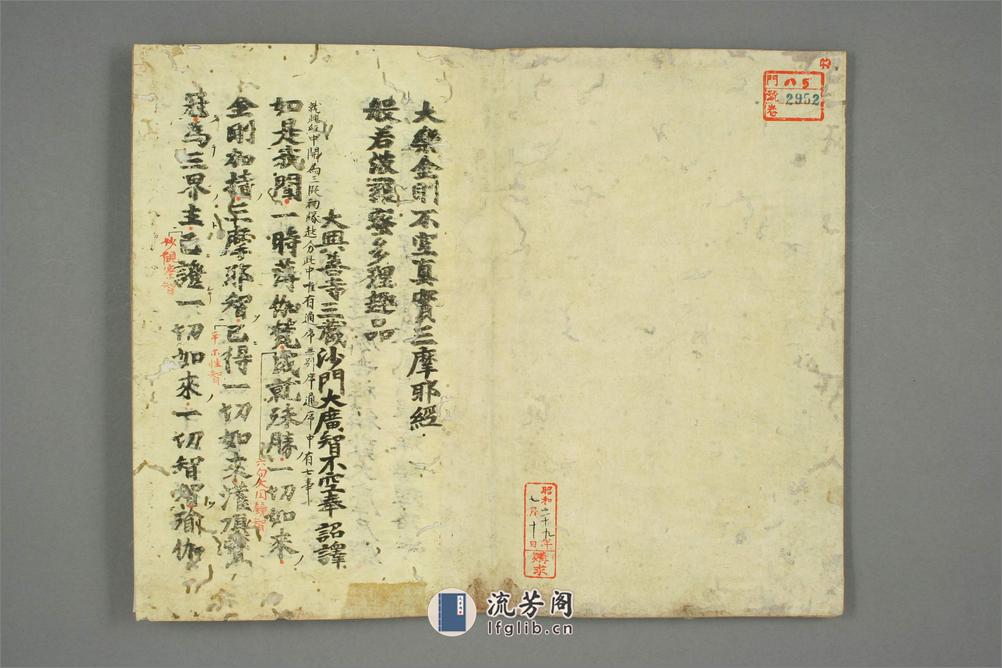 大樂金剛不空真實三摩耶經
般若波羅蜜多理趣品
大興善寺三藏沙門大廣智不空奉 詔譯
就牒經中開為三既初緣起分此中唯有通序無別序通序中有七事
如是我聞一時薄伽梵成就殊勝一切如來
六句大圓鏡智
金剛加持三摩耶智已得一切如來灌頂寶
平等性智
冠為三界主已證一切如來一切智智瑜伽
妙觀察智
門 八5
號 2952
卷
昭和二十九年
七月十日
購求
流芳阁
lfglib.cn